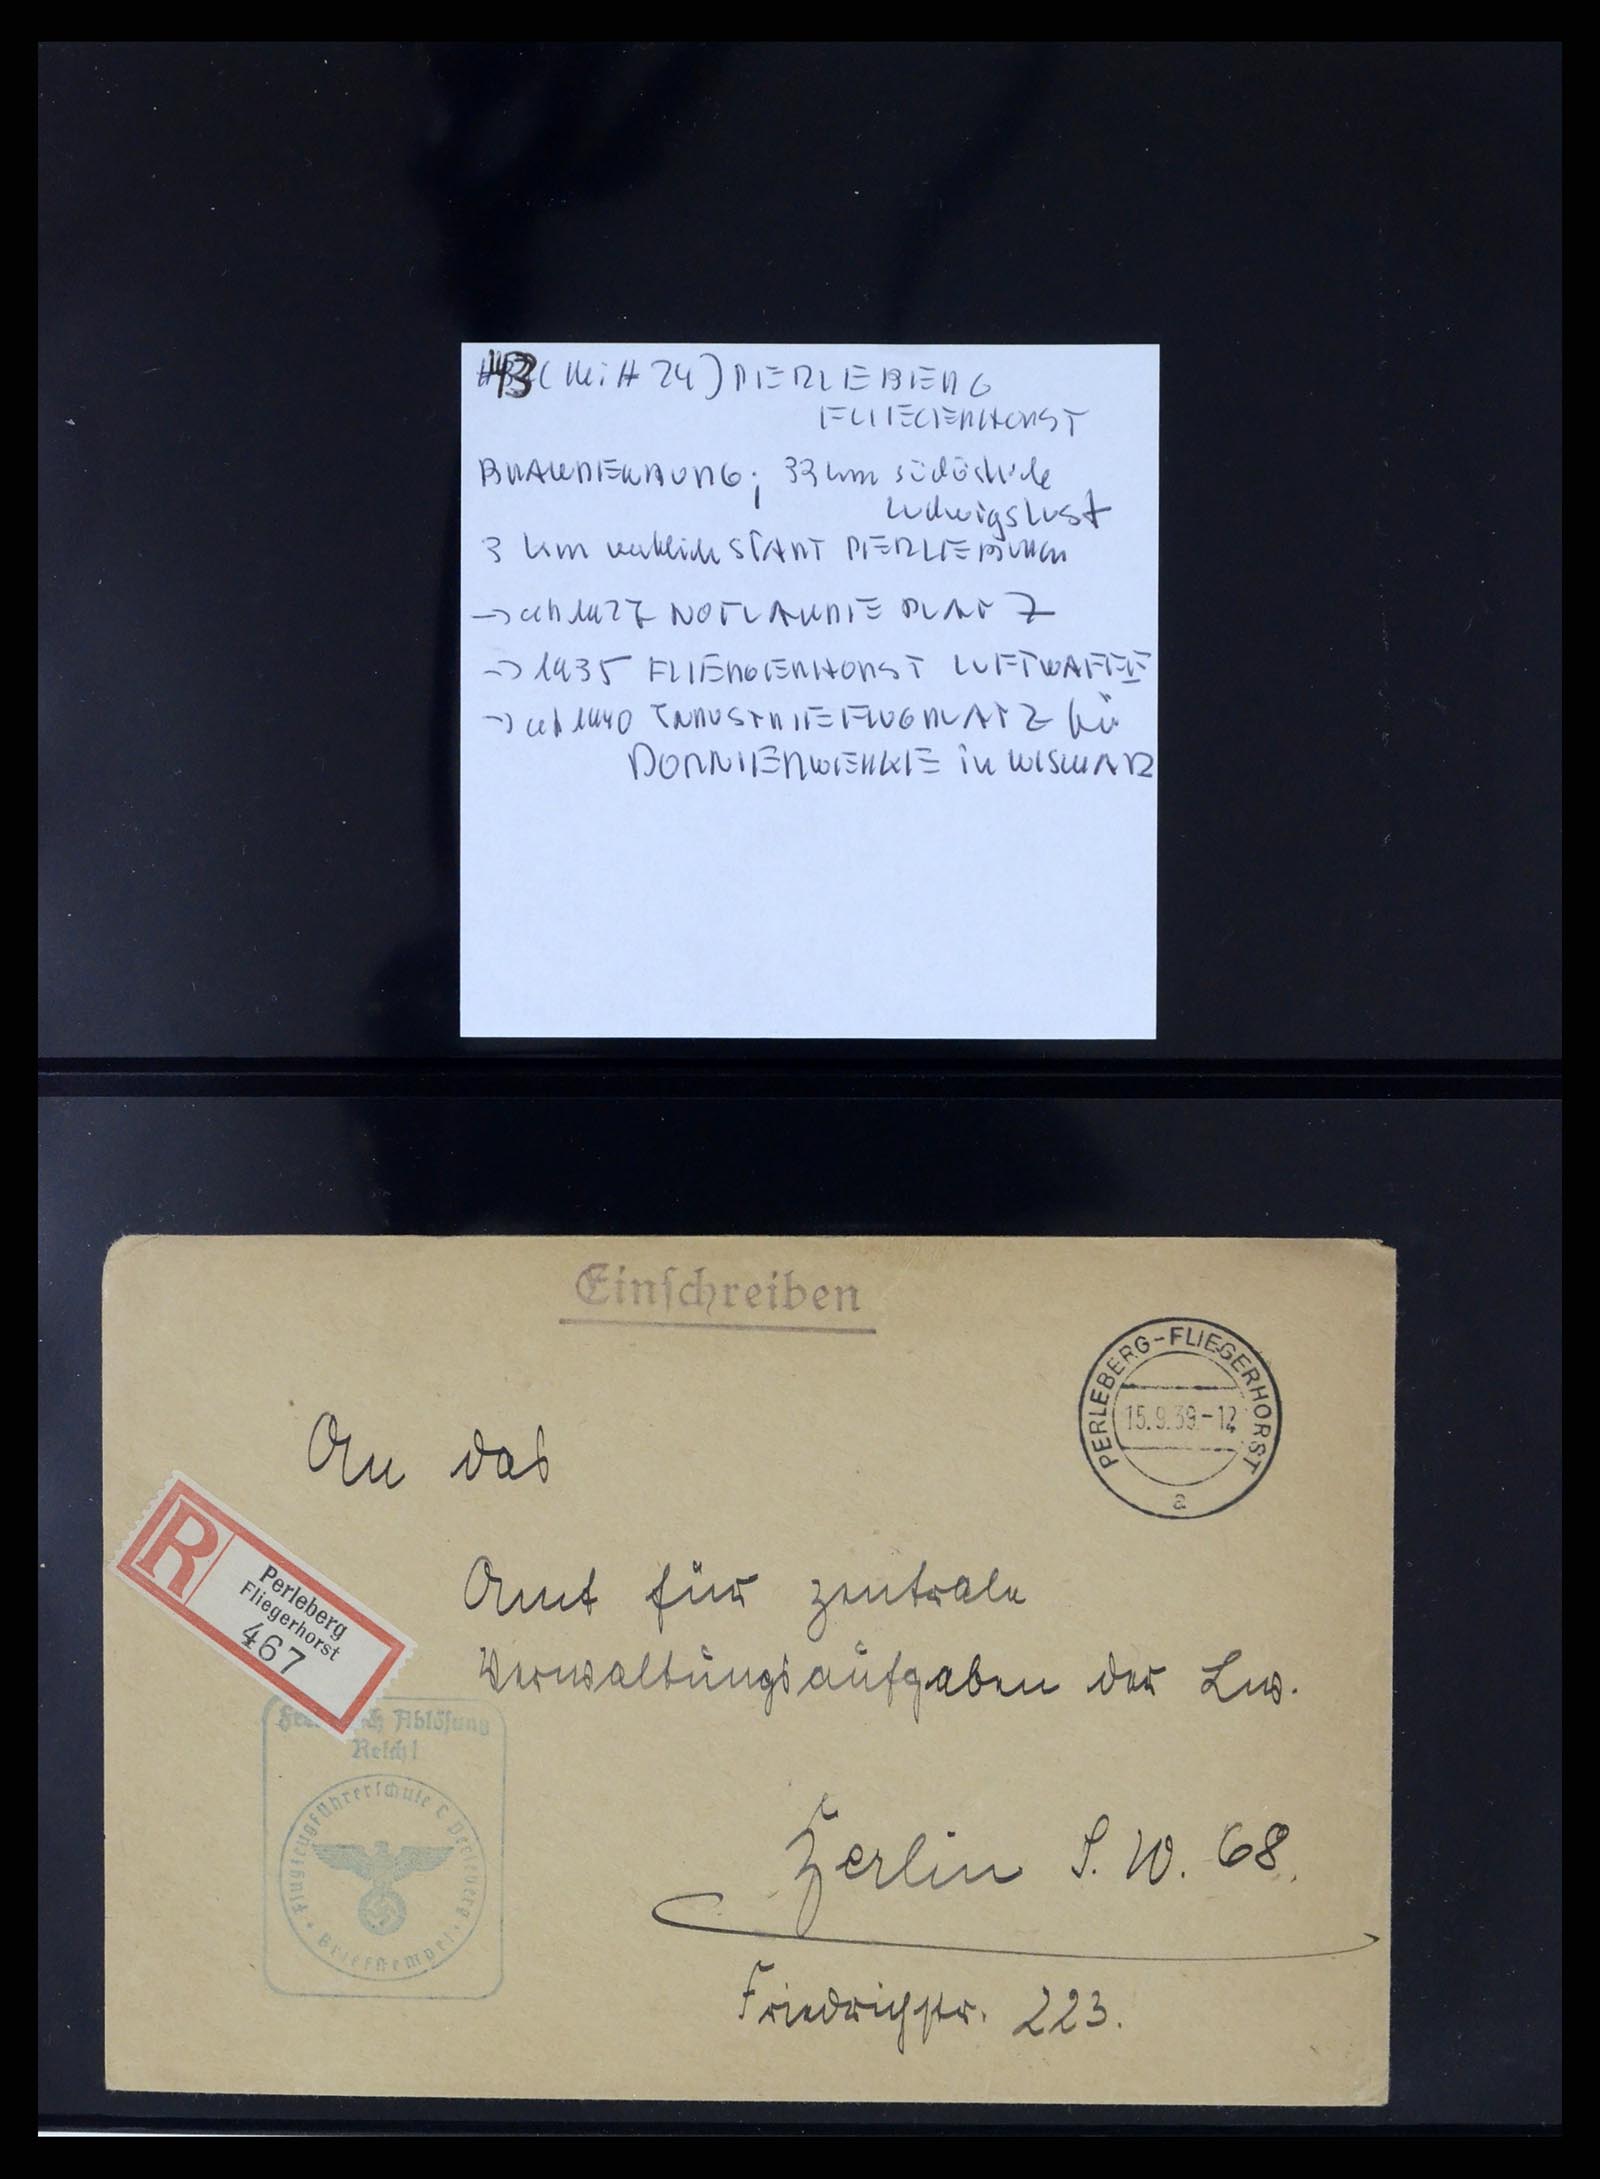 43 (Mitt 24) PERLEBERG
FLIEGERHORST
BRANDENBURG; 33 km südöstlich
Ludwigslust
3 km nördlich STADT PERLEBERG
→ ab 1927 NOTLANDEPLATZ
→ 1935 FLIEGERHORST LUFTWAFFE
→ ab 1940 INDUSTRIEFLUGPLATZ für
DORNIERWERKE in WISMAR
Einschreiben
PERLEBERG-FLIEGERHORST
15.9.39-12
a
An das
R
Perleberg
Fliegerhorst
467
Amt für zentrale
Verwaltungsaufgaben der Lw.
Ablösung
Reich!
Flugzeugführerschule C Perleberg
Briefstempel
Berlin S.W. 68.
Friedrichstr. 223.